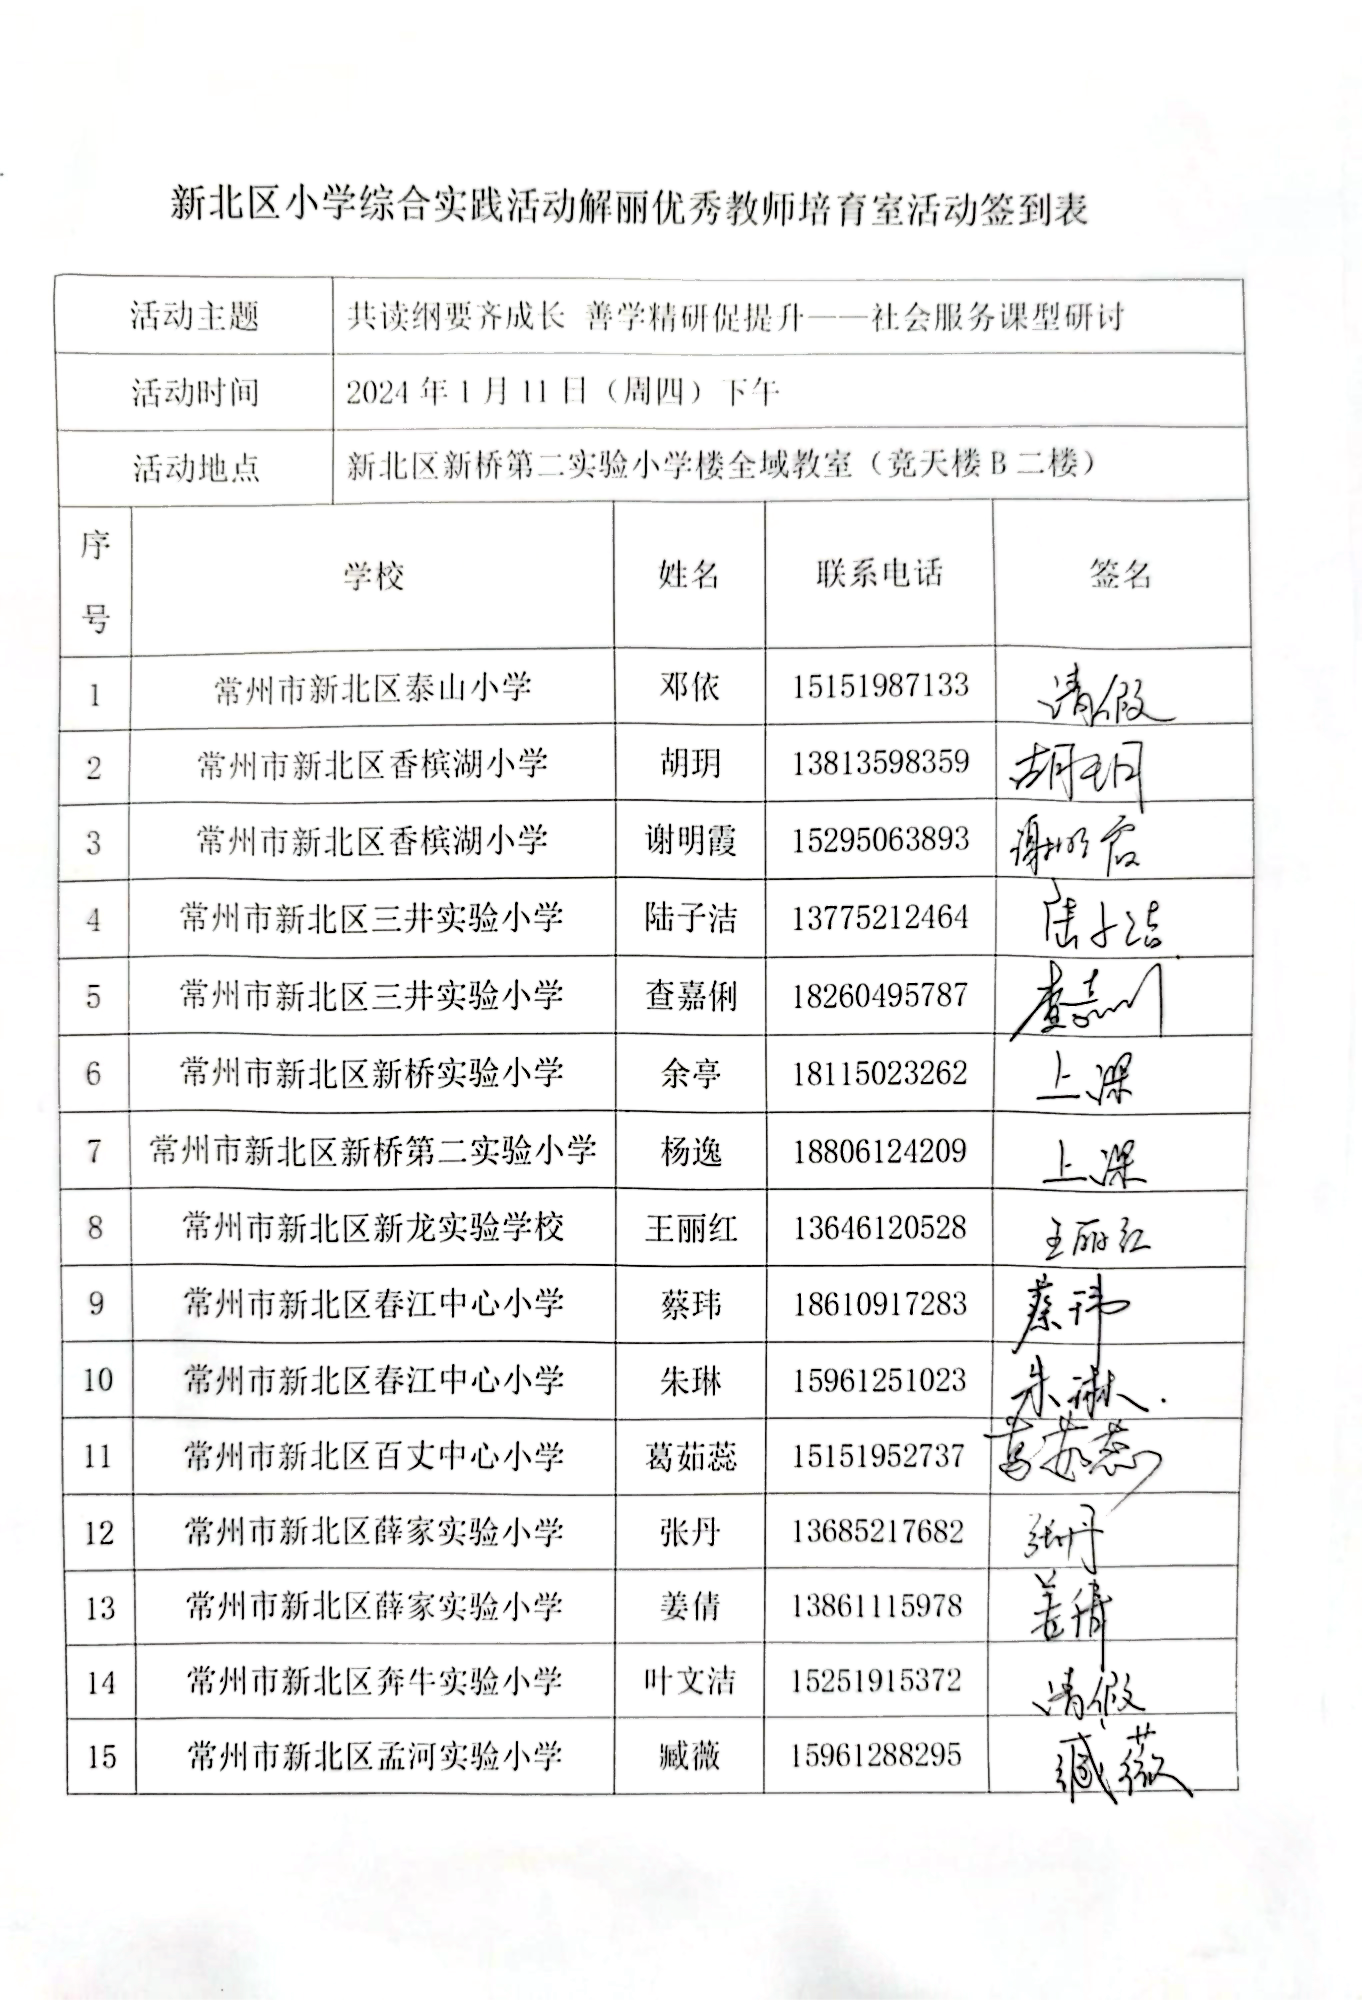 新北区小学综合实践活动解丽优秀教师培育室活动签到表
活动主题 共读纲要齐成长 善学精研促提升——社会服务课型研讨
活动时间 2024年1月11日（周四）下午
活动地点 新北区新桥第二实验小学楼全域教室（竞天楼B二楼）
序号 学校 姓名 联系电话 签名
1 常州市新北区泰山小学 邓依 15151987133 请假
2 常州市新北区香槟湖小学 胡玥 13813598359 胡玥
3 常州市新北区香槟湖小学 谢明霞 15295063893 谢明霞
4 常州市新北区三井实验小学 陆子洁 13775212464 陆子洁
5 常州市新北区三井实验小学 查嘉俐 18260495787 查嘉俐
6 常州市新北区新桥实验小学 余亭 18115023262 上课
7 常州市新北区新桥第二实验小学 杨逸 18806124209 上课
8 常州市新北区新龙实验学校 王丽红 13646120528 王丽红
9 常州市新北区春江中心小学 蔡玮 18610917283 蔡玮
10 常州市新北区春江中心小学 朱琳 15961251023 朱琳
11 常州市新北区百丈中心小学 葛茹蕊 15151952737 葛茹蕊
12 常州市新北区薛家实验小学 张丹 13685217682 张丹
13 常州市新北区薛家实验小学 姜倩 13861115978 姜倩
14 常州市新北区奔牛实验小学 叶文洁 15251915372 请假
15 常州市新北区孟河实验小学 臧薇 15961288295 臧薇